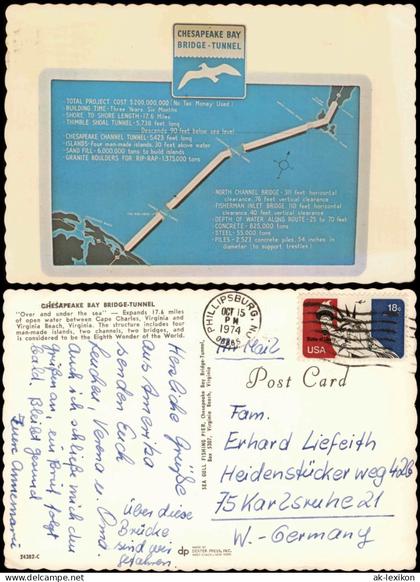 CHESAPEAKE BAY
BRIDGE-TUNNEL
TOTAL PROJECT COST $200,000,000 (No Tax Money Used)
BUILDING TIME - Three Years Six Months
SHORE TO SHORE LENGTH-17.6 Miles
THIMBLE SHOAL TUNNEL-5,738 feet long
Descends 90 feet below sea level
CHESAPEAKE CHANNEL TUNNEL-5,423 feet long
ISLANDS-Four man-made islands, 30 feet above water
SAND FILL-6,000,000 tons to build islands
GRANITE BOULDERS FOR RIP-RAP-1,175,000 tons
NORTH CHANNEL BRIDGE-311 feet horizontal
clearance, 76 feet vertical clearance
FISHERMAN INLET BRIDGE, 110 feet horizontal
clearance, 40 feet vertical clearance
DEPTH OF WATER ALONG ROUTE-25 to 70 feet
CONCRETE-825,000 tons
STEEL-55,000 tons
PILES-2,523 concrete piles, 54 inches in
diameter (to support trestles)
CHESAPEAKE BAY BRIDGE-TUNNEL
"Over and under the sea" — Expands 17.6 miles
of open water between Cape Charles, Virginia and
Virginia Beach, Virginia. The structure includes four
man-made islands, two channels, two bridges, and
is considered to be the Eighth Wonder of the World.
Herzliche Grüße
aus Amerika
senden Euch
Verona u. Oma.
Auch ich schließe mich den
Grüßen an, ein Brief folgt
bald, Bleibt gesund
Eure Annemarie
über diese
Brücke
sind wir
gefahren.
24382-C
SEA GULL FISHING PIER, Chesapeake Bay Bridge-Tunnel,
Box 5307, Virginia Beach, Virginia
dp
MADE BY
DEXTER PRESS, INC.
WEST NYACK, NEW YORK
PHILLIPSBURG, NJ
OCT 15
PM
1974
08865
Air Mail
18c
USA
Post Card
Fam.
Erhard Liefeith
Heidenstückerweg 42b
75 Karlsruhe 21
W.-Germany
© ak-lexikon